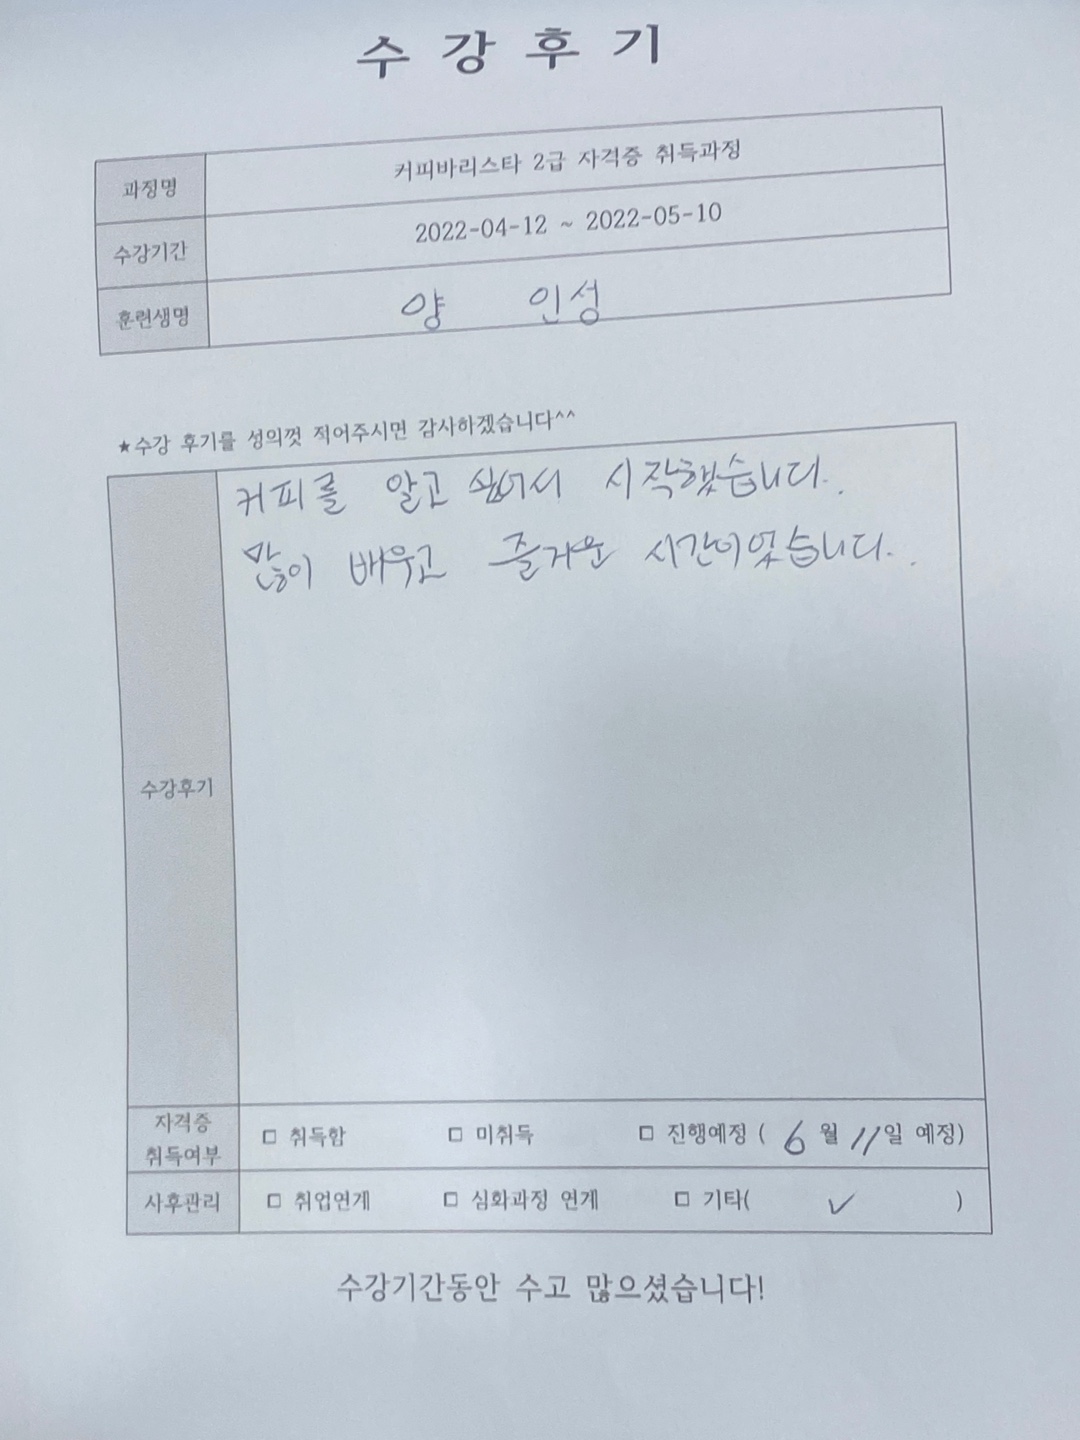 수 강 후 기
과정명 커피바리스타 2급 자격증 취득과정
수강기간 2022-04-12 ~ 2022-05-10
훈련생명 양 인성
★수강 후기를 성의껏 적어주시면 감사하겠습니다^^
커피를 알고 싶어서 시작했습니다.
많이 배우고 즐거운 시간이었습니다.
수강후기
자격증
취득여부 □ 취득함 □ 미취득 □ 진행예정 ( 6 월 11 일 예정)
사후관리 □ 취업연계 □ 심화과정 연계 □ 기타( ✓ )
수강기간동안 수고 많으셨습니다!